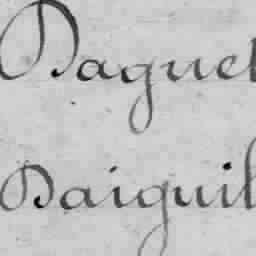 Daguet
Daiguil